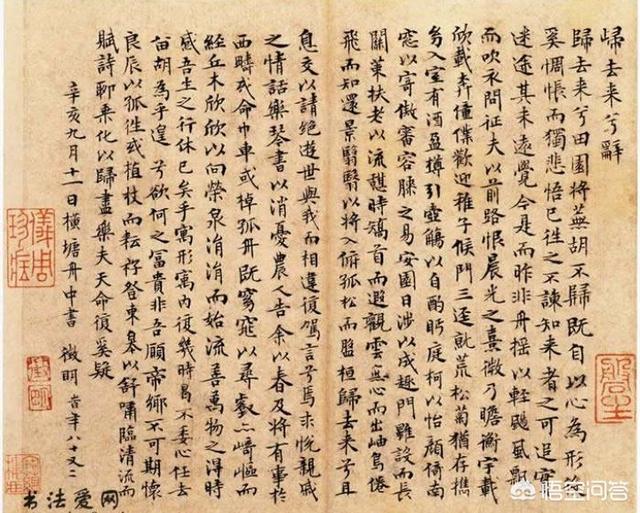 歸去来兮辭
歸去来兮田園将蕪胡不歸既自以心為形役
奚惆悵而獨悲悟已往之不諫知来者之可追寔
迷途其未遠覺今是而昨非舟摇以輕颺風飄
而吹衣問征夫以前路恨晨光之熹微乃瞻衡宇載
欣載奔僮僕歡迎稚子候門三逕就荒松菊猶存携
幼入室有酒盈樽引壺觴以自酌眄庭柯以怡顔倚南
窓以寄傲審容膝之易安園日涉以成趣門雖設而長
關策扶老以流憩時矯首而遐觀雲無心而出岫鳥倦
飛而知還景翳翳以将入撫孤松而盤桓歸去来兮且
息交以請絕遊世與我而相違復駕言兮焉求悅親戚
之情話樂琴書以消憂農人告余以春及将有事於
西疇或命巾車或棹孤舟既窈窕以尋壑亦崎嶇而
經丘木欣欣以向榮泉涓涓而始流善萬物之得時
感吾生之行休已矣乎寓形寓内復幾時曷不委心任去
留胡為乎遑遑兮欲何之富貴非吾願帝鄉不可期懷
良辰以孤往或植杖而耘耔登東皋以舒嘯臨清流而
賦詩聊乘化以歸盡樂夫天命復奚疑
辛亥九月十一日橫塘舟中書 徵明 旹年八十又二
儀周珍藏
书法爱网
悟空问答